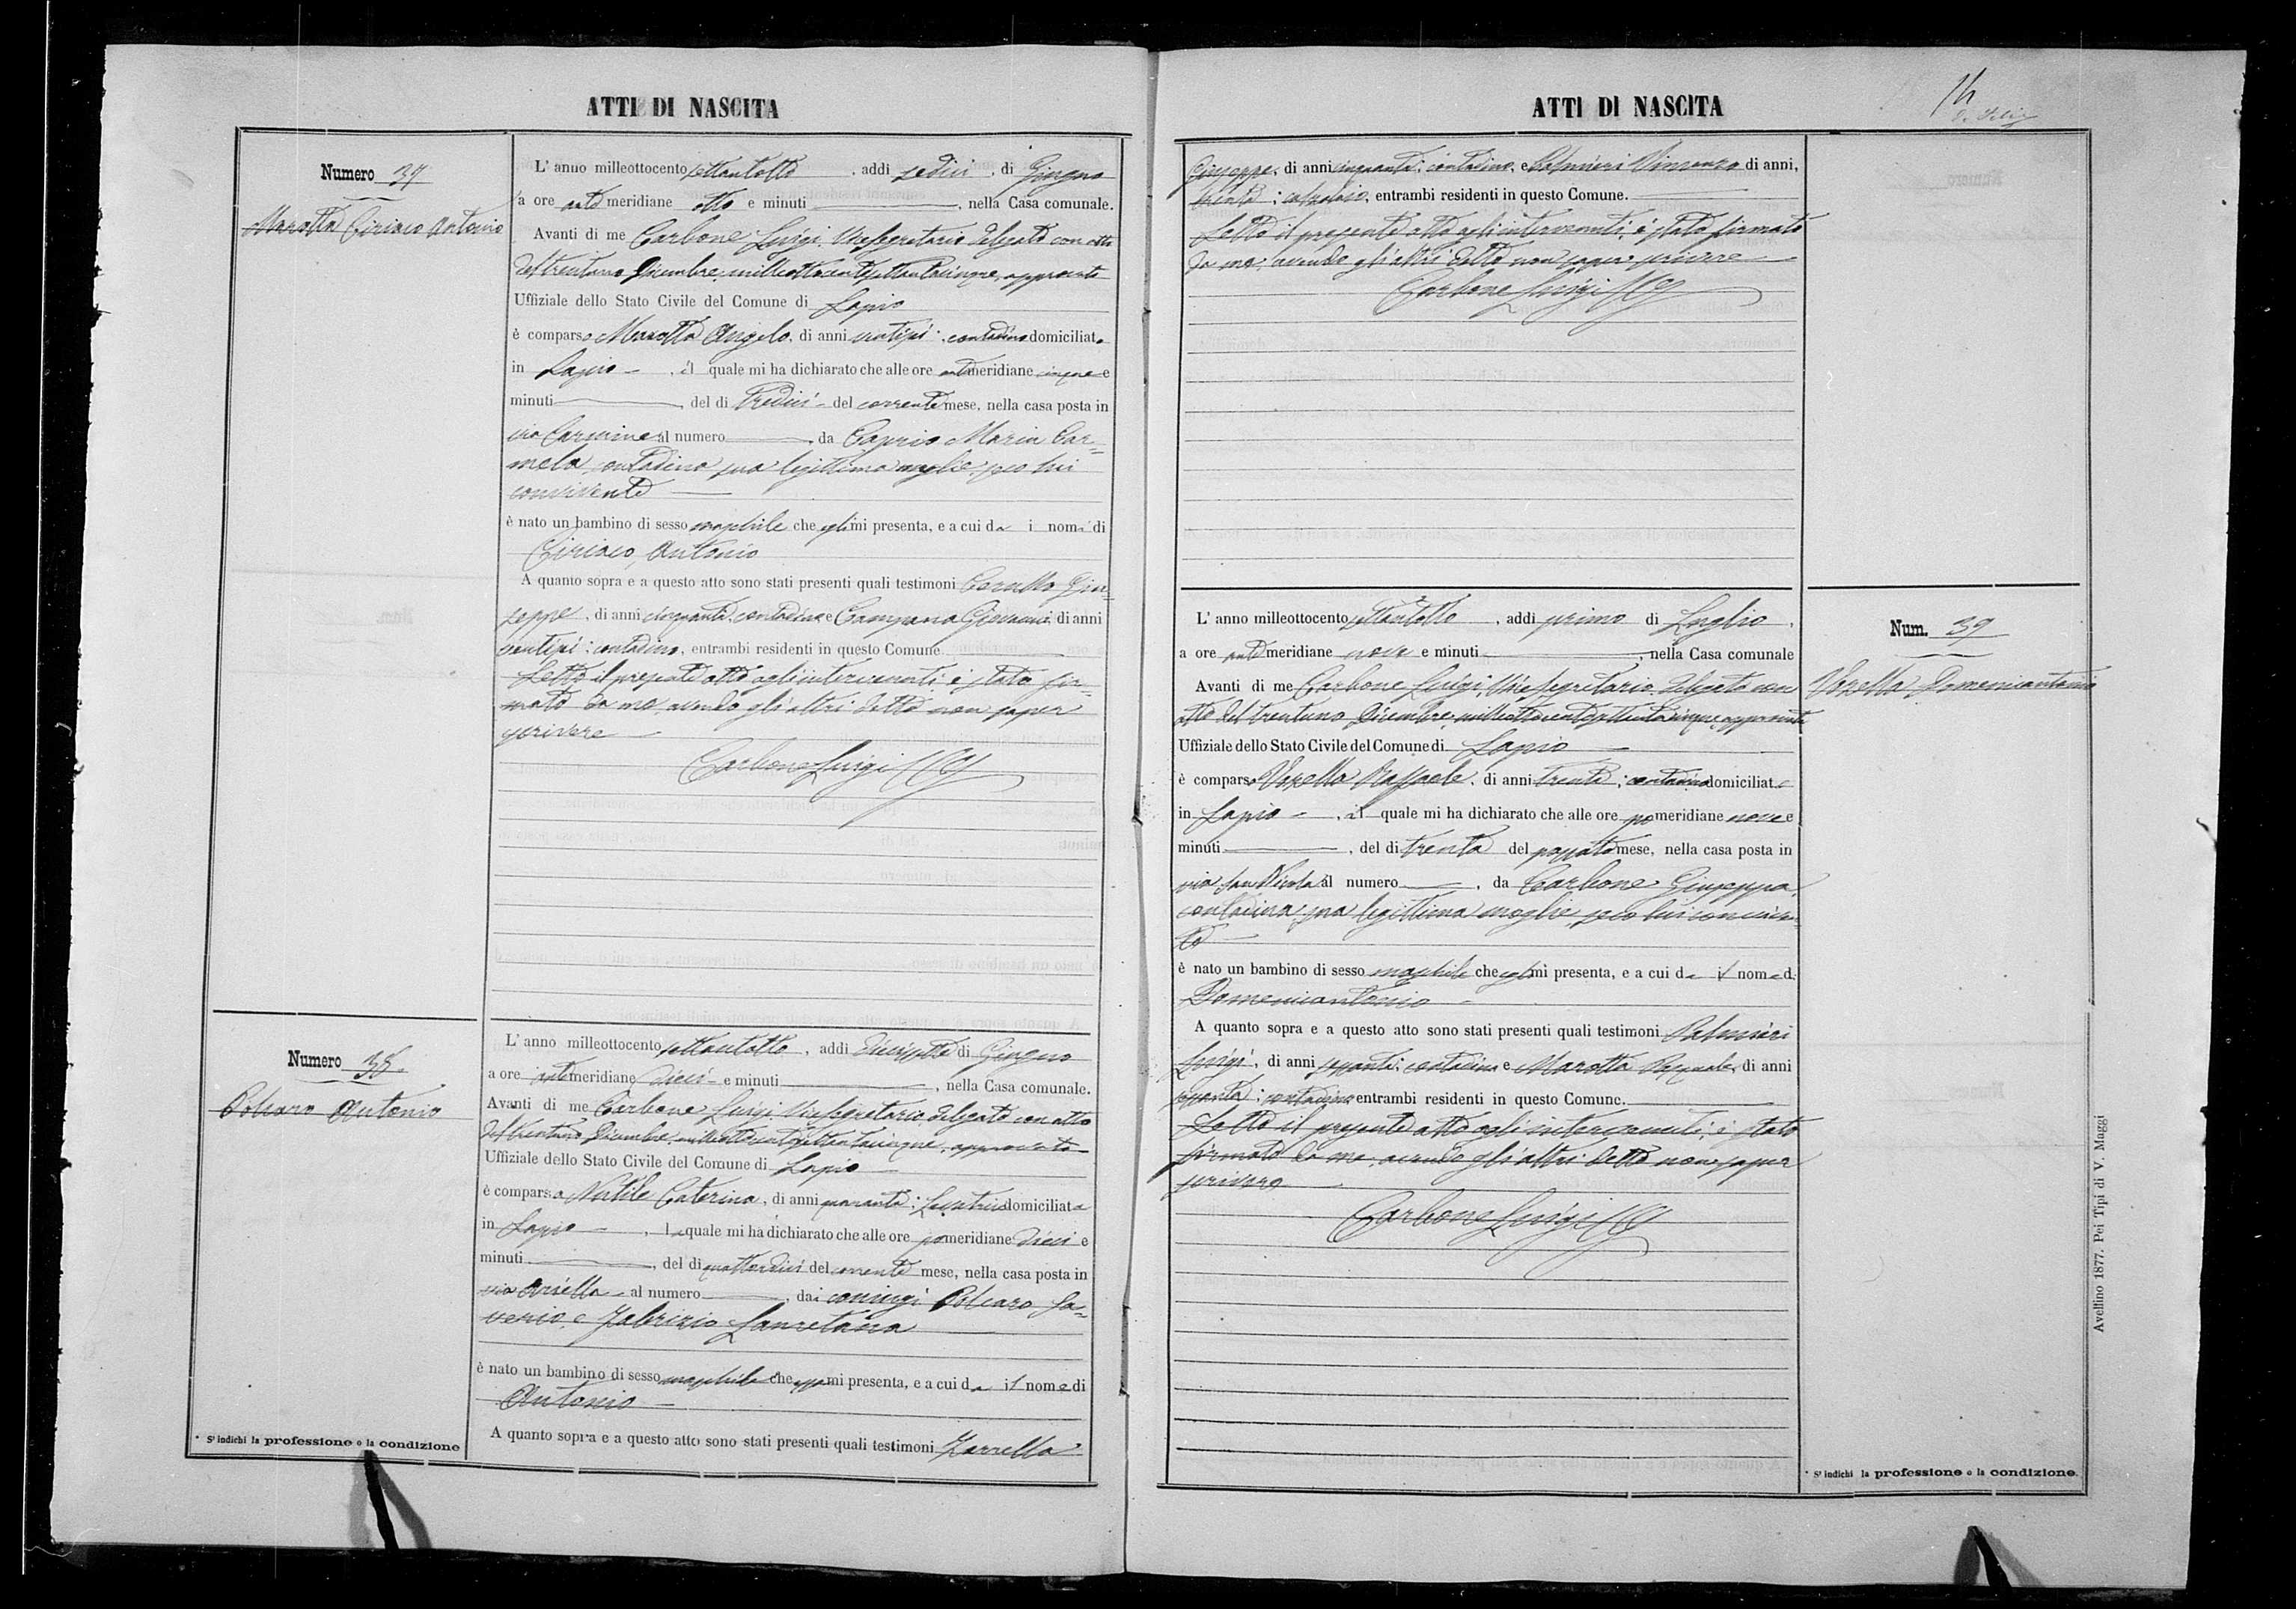 ATTI DI NASCITA
Numero 37
Marotta Ciriaco Antonio
L' anno milleottocento settantotto, addi sedici, di Giugno
a ore antimeridiane otto e minuti, nella Casa comunale.
Avanti di me Carbone Luigi Vicesegretario delegato con atto
del trentuno Dicembre milleottocentosettantacinque, approvato
Uffiziale dello Stato Civile del Comune di Lapio
è comparso Marotta Angelo, di anni contadino domiciliato
in Lapio, il quale mi ha dichiarato che alle ore antimeridiane cinque e
minuti, del di tredici del corrente mese, nella casa posta in
via Carmine al numero, da Caprio Maria Car=
mela contadina sua legittima moglie, seco lui
convivente
è nato un bambino di sesso maschile che egli mi presenta, e a cui da i nomi di
Ciriaco, Antonio
A quanto sopra e a questo atto sono stati presenti quali testimoni Giu=
seppe, di anni cinquanta, contadino e Campana Giovanni di anni
contadino, entrambi residenti in questo Comune
Letto il presente atto agli intervenuti, è stato fir=
mato da me, avendo gli altri detto non saper
scrivere
Carbone Luigi
Numero 38.
Polcaro Antonio
L' anno milleottocento settantotto, addi diciassette di Giugno
a ore antimeridiane dieci e minuti, nella Casa comunale.
Avanti di me Carbone Luigi Vicesegretario delegato con atto
del trentuno Dicembre milleottocentosettantacinque, approvato
Uffiziale dello Stato Civile del Comune di Lapio
è comparsa Caterina, di anni quaranta; levatrice domiciliata
in Lapio, la quale mi ha dichiarato che alle ore pomeridiane dieci e
minuti, del di quattordici del corrente mese, nella casa posta in
via Arsiella al numero, dai coniugi Polcaro Sa=
verio e Fabrizio Lauretana
è nato un bambino di sesso maschile che essa mi presenta, e a cui da il nome di
Antonio
A quanto sopra e a questo atto sono stati presenti quali testimoni Zarrella
* Si indichi la professione o la condizione
ATTI DI NASCITA
14
Giuseppe, di anni cinquanta; contadino, e Palmieri Vincenzo di anni,
trenta; calzolaio, entrambi residenti in questo Comune.
Letto il presente atto agli intervenuti, è stato firmato
da me, avendo gli altri detto non saper scrivere
Carbone Luigi
L' anno milleottocento settantotto, addi primo di Luglio,
a ore antimeridiane nove e minuti, nella Casa comunale
Avanti di me Carbone Luigi, Vicesegretario delegato con
atto del trentuno Dicembre milleottocentosettantacinque approvato
Uffiziale dello Stato Civile del Comune di Lapio
è comparso Vozella Raffaele, di anni trenta; contadino domiciliato
in Lapio, il quale mi ha dichiarato che alle ore pomeridiane nove e
minuti, del di trenta del passato mese, nella casa posta in
via San Nicola al numero, da Carbone Giuseppa,
contadina sua legittima moglie, seco lui conviven=
te
è nato un bambino di sesso maschile che egli mi presenta, e a cui da il nome di
Domenicantonio
A quanto sopra e a questo atto sono stati presenti quali testimoni Palmieri
Luigi, di anni sessanta; contadino e Marotta Pasquale, di anni
sessanta; contadino entrambi residenti in questo Comune.
Letto il presente atto agli intervenuti, è stato
firmato da me, avendo gli altri detto non saper
scrivere
Carbone Luigi
Num. 39
Vozella Domenicantonio
* Si indichi la professione o la condizione.
Avellino 1877. Pei Tipi di V. Maggi